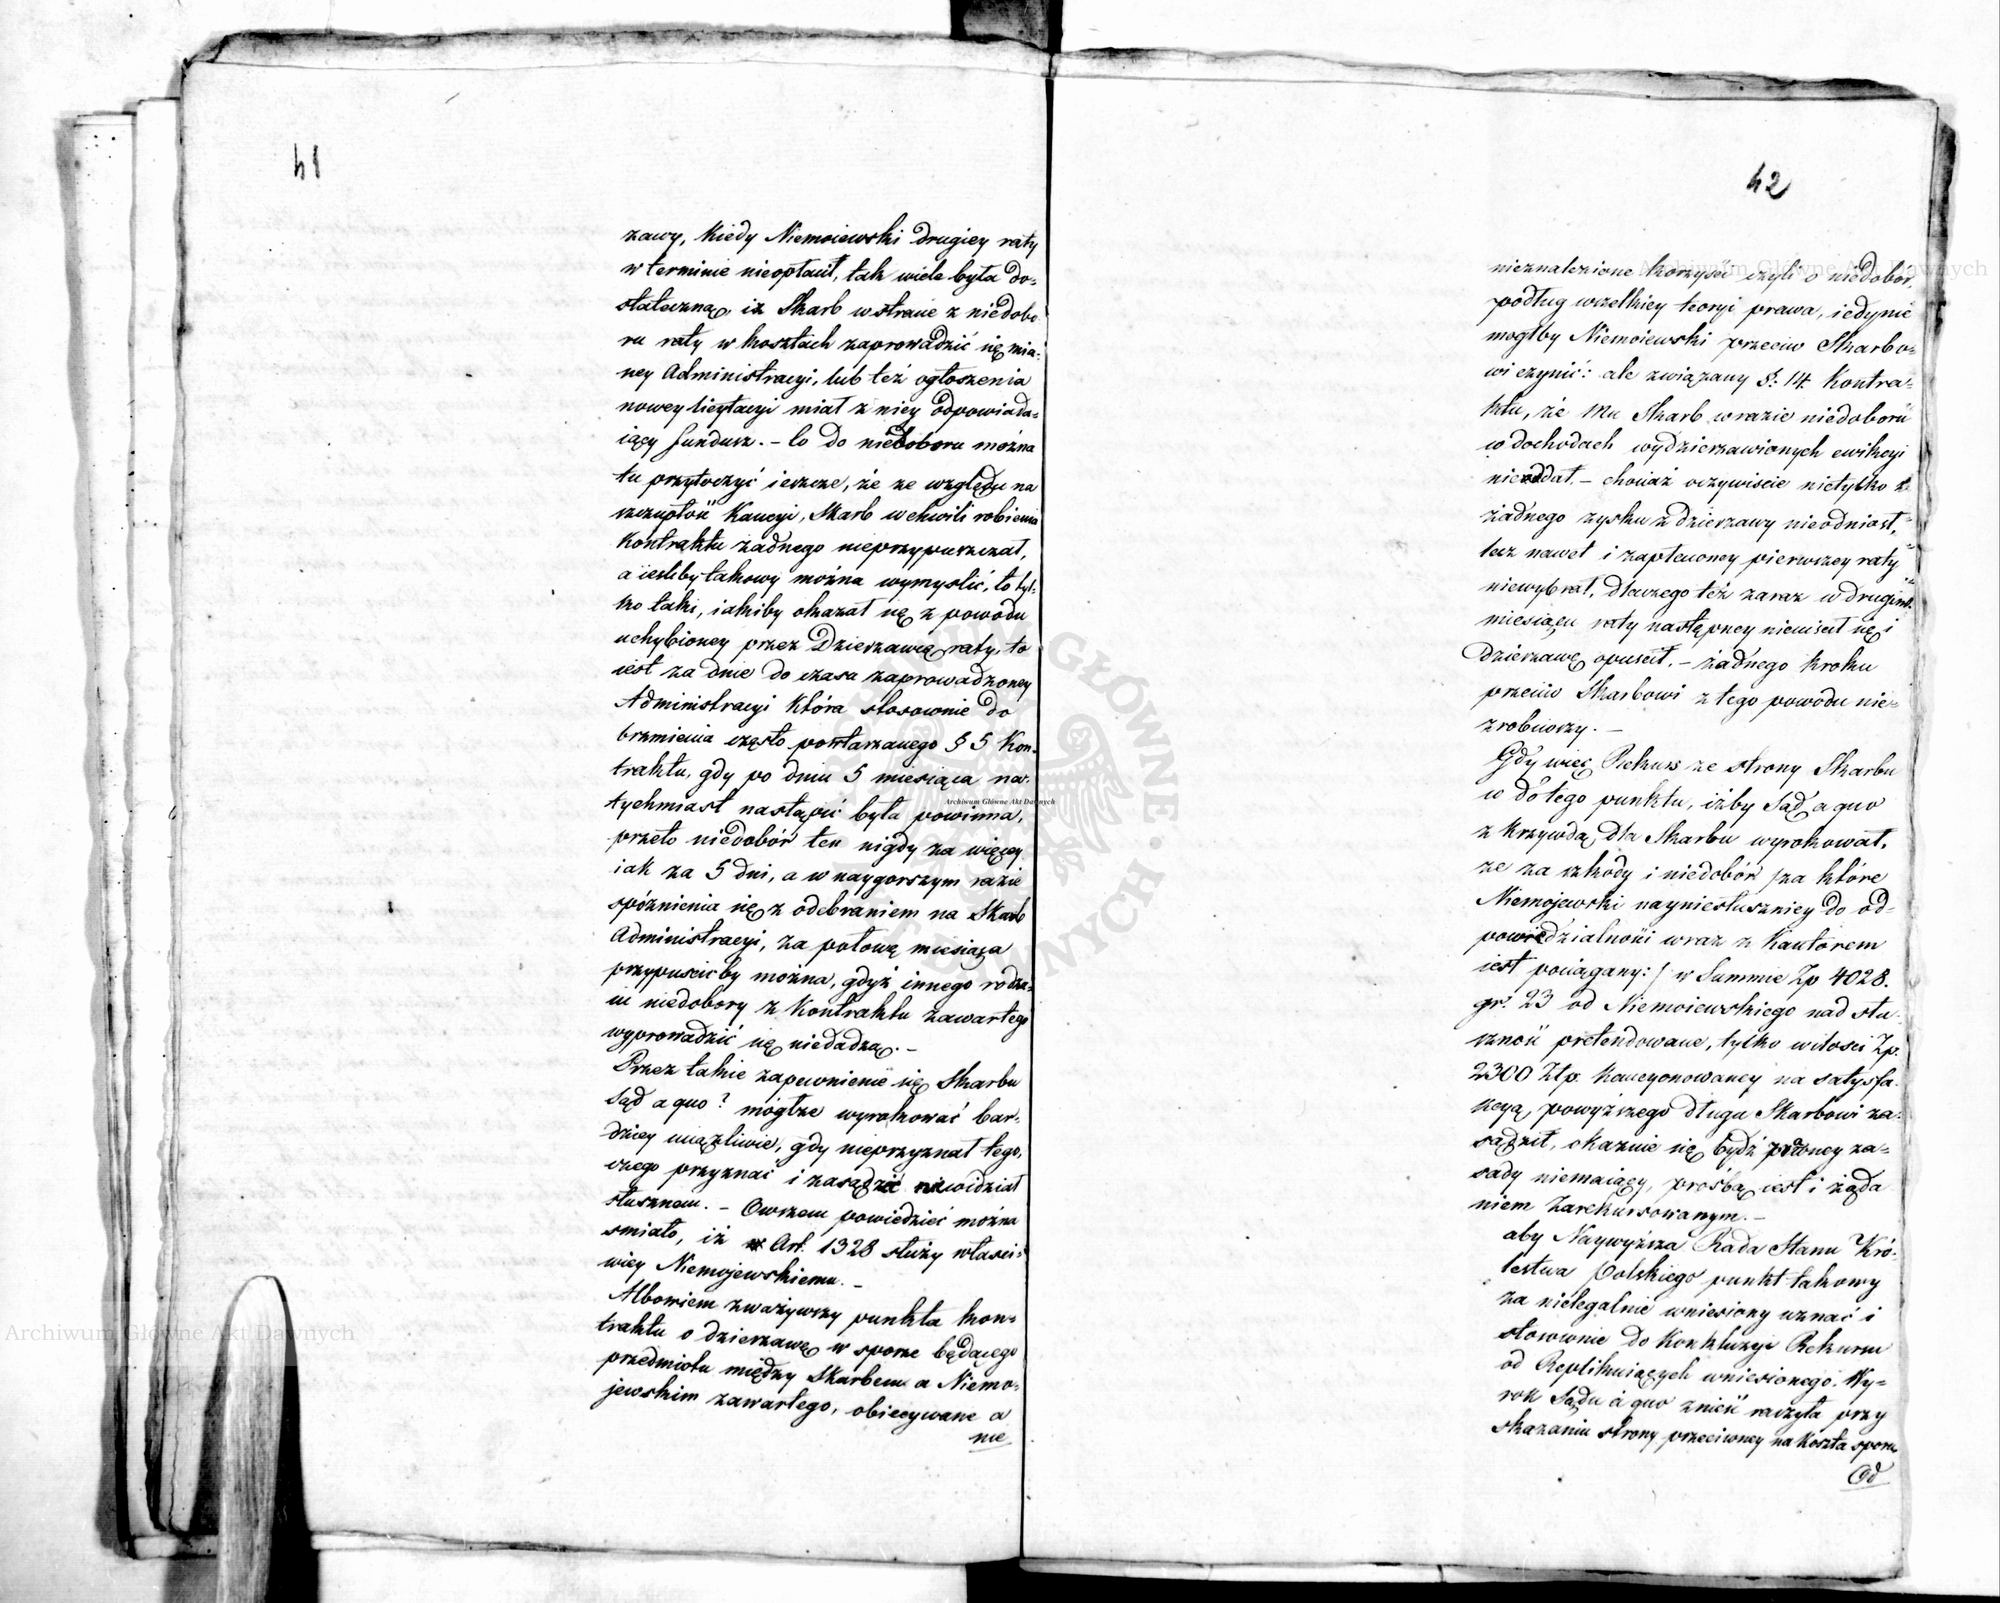 41
zawy, kiedy Niemoiewski drugiey raty
w terminie nieopłacił, tak wiele była do-
stateczną, iż Skarb w stracie z niedobo
ru raty w kosztach zaprowadzić się mia-
ney Administracyi, lub też ogłoszenia
nowey licytacyi miał z niey odpowiada-
iący fundusz. – Co do niedoboru można
tu przytoczyć ieszcze, że ze względu na
szczupłość Kaucyi, Skarb w chwili robienia
Kontraktu żadnego nieprzypuszczał,
a iesliby takowy można wymyslić, to tyl-
ko taki, iakiby okazał się z powodu
uchybioney przez Dzierzawcę raty, to
iest za dnie do czasu zaprowadzoney
Administracyi która stosownie do
brzmienia często powtarzanego § 5 Kon-
traktu, gdy po dniu 5 miesiąca na-
tychmiast nastąpić była powinna,
przeto niedobór ten nigdy za więcey
iak za 5 dni, a w naygorszym razie
spóźnienia się z odebraniem na Skarb
Administracyi, za połowę miesiąca
przypuscicby można, gdyż innego rodza-
iu niedobory z Kontraktu zawartego
wyprowadzić się niedadzą. –
Przez takie zapewnienie się Skarbu
Sąd a quo? mógłze wyrokować bar-
dziey uciążliwie, gdy nieprzyznał tego,
czego przyznać i zasądzić niewidział
słusznem. – Owszem powiedzieć można
smiało, iż Art. 1328 służy własci-
wiey Niemojewskiemu. –
Albowiem zważywszy punkta kon-
traktu o dzierzawę w sporze będącego
przedmiotu między Skarbem a Niemo-
jewskim zawartego, obiecywane a
nie
42
nieznalezione korzysci czyli o niedobór
podług wszelkiey teoryi prawa, iedynie
mogłby Niemoiewski przeciw Skarbo-
wi czynić: ale związany §. 14 Kontra-
ktu, że mu Skarb w razie niedoboru
w dochodach wydzierzawionych ewikcyi
niedał – chociaż oczywiscie nietylko
żadnego zysku z dzierzawy nieodniosł,
lecz nawet i zapłaconey pierwszey raty
niewybrał, dlaczego też zaraz w drugim
miesiącu raty następney nieuiscił się i
Dzierzawę opuscił. – żadnego kroku
przeciw Skarbowi z tego powodu nie-
zrobiwszy. –
Gdy więc Rekurs ze strony Skarbu
w do tego punktu, iżby Sąd a quo
z krzywdą dla Skarbu wyrokował,
ze za szkody i niedobór /za które
Niemojewski naynieslusznicy do od-
powiedzialności wraz z Kautorem
iest pociągany:/ w Summie Zp 4028.
gr. 23 od Niemoiewskiego nad słu-
szność pretendowane, tylko w ilosci Zp.
2300 Złp. kaucyonowaney na satysfa-
kcyą powyższego długu Skarbowi za-
sądził, okazuie się bydź prawney za-
sady niemaiący, prośbą iest i żąda
niem zarekursowanym. –
aby Naywyższa Rada Stanu Kró-
lestwa Polskiego punkt takowy
za nielegalnie wniesiony uznać i
stosownie do Konkluzyi Rekursu
od Replikuiących wniesionego. Wy-
rok Sądu à quo znieść raczyła przy
skazaniu strony przeciwney na koszta sporu
Od
Archiwum Główne Akt Dawnych
Archiwum Główne Akt Dawnych
Archiwum Główne Akt Dawnych